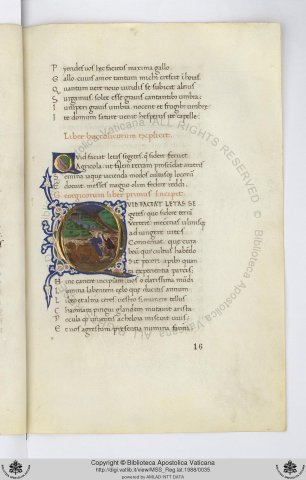 Pyerides uos hec facietis maxima gallo
Gallo cuius amor tantum mihi crescit i horas
Quantum uere nouo uiridis se subicit alnus
Surgamus solet esse grauis cantantibus umbra:
Iuniperi grauis umbra nocent et frugibus umbre
Ite domum sature uenit hesperus ite capelle
Liber bucolicorum explicit.
Quid faciat letas segetes que sidera seruet
Agricola ut facilem terram proscindat aratris
Semina quo iacienda modo cultusque locorum
Edocuit messes magno olim fenore reddi.
Georgicorum liber primus incipit.
QVID FACIAT LETAS SE
getes: quo sidere terrã
Vertere mecenas ulmisq;
Adiungere uites
Conueniat: que cura
boũ quis cultus habẽdo
Sit pecori: apibus quan
Experientia parcis;
Hinc canere incipiam uos o clarissima mũdi
Lumina labentem celo que ducitis annum
Liber et alma ceres uestro si munere tellus
Chaoniam pingui glandem mutauit arista
Poculaq; inuentis acheloia miscuit uuis:
Et uos agrestum presentia numina fauni
16
Copyright © Biblioteca Apostolica Vaticana
http://digi.vatlib.it/view/MSS_Reg.lat.1988/0035
powered by AMLAD NTT DATA